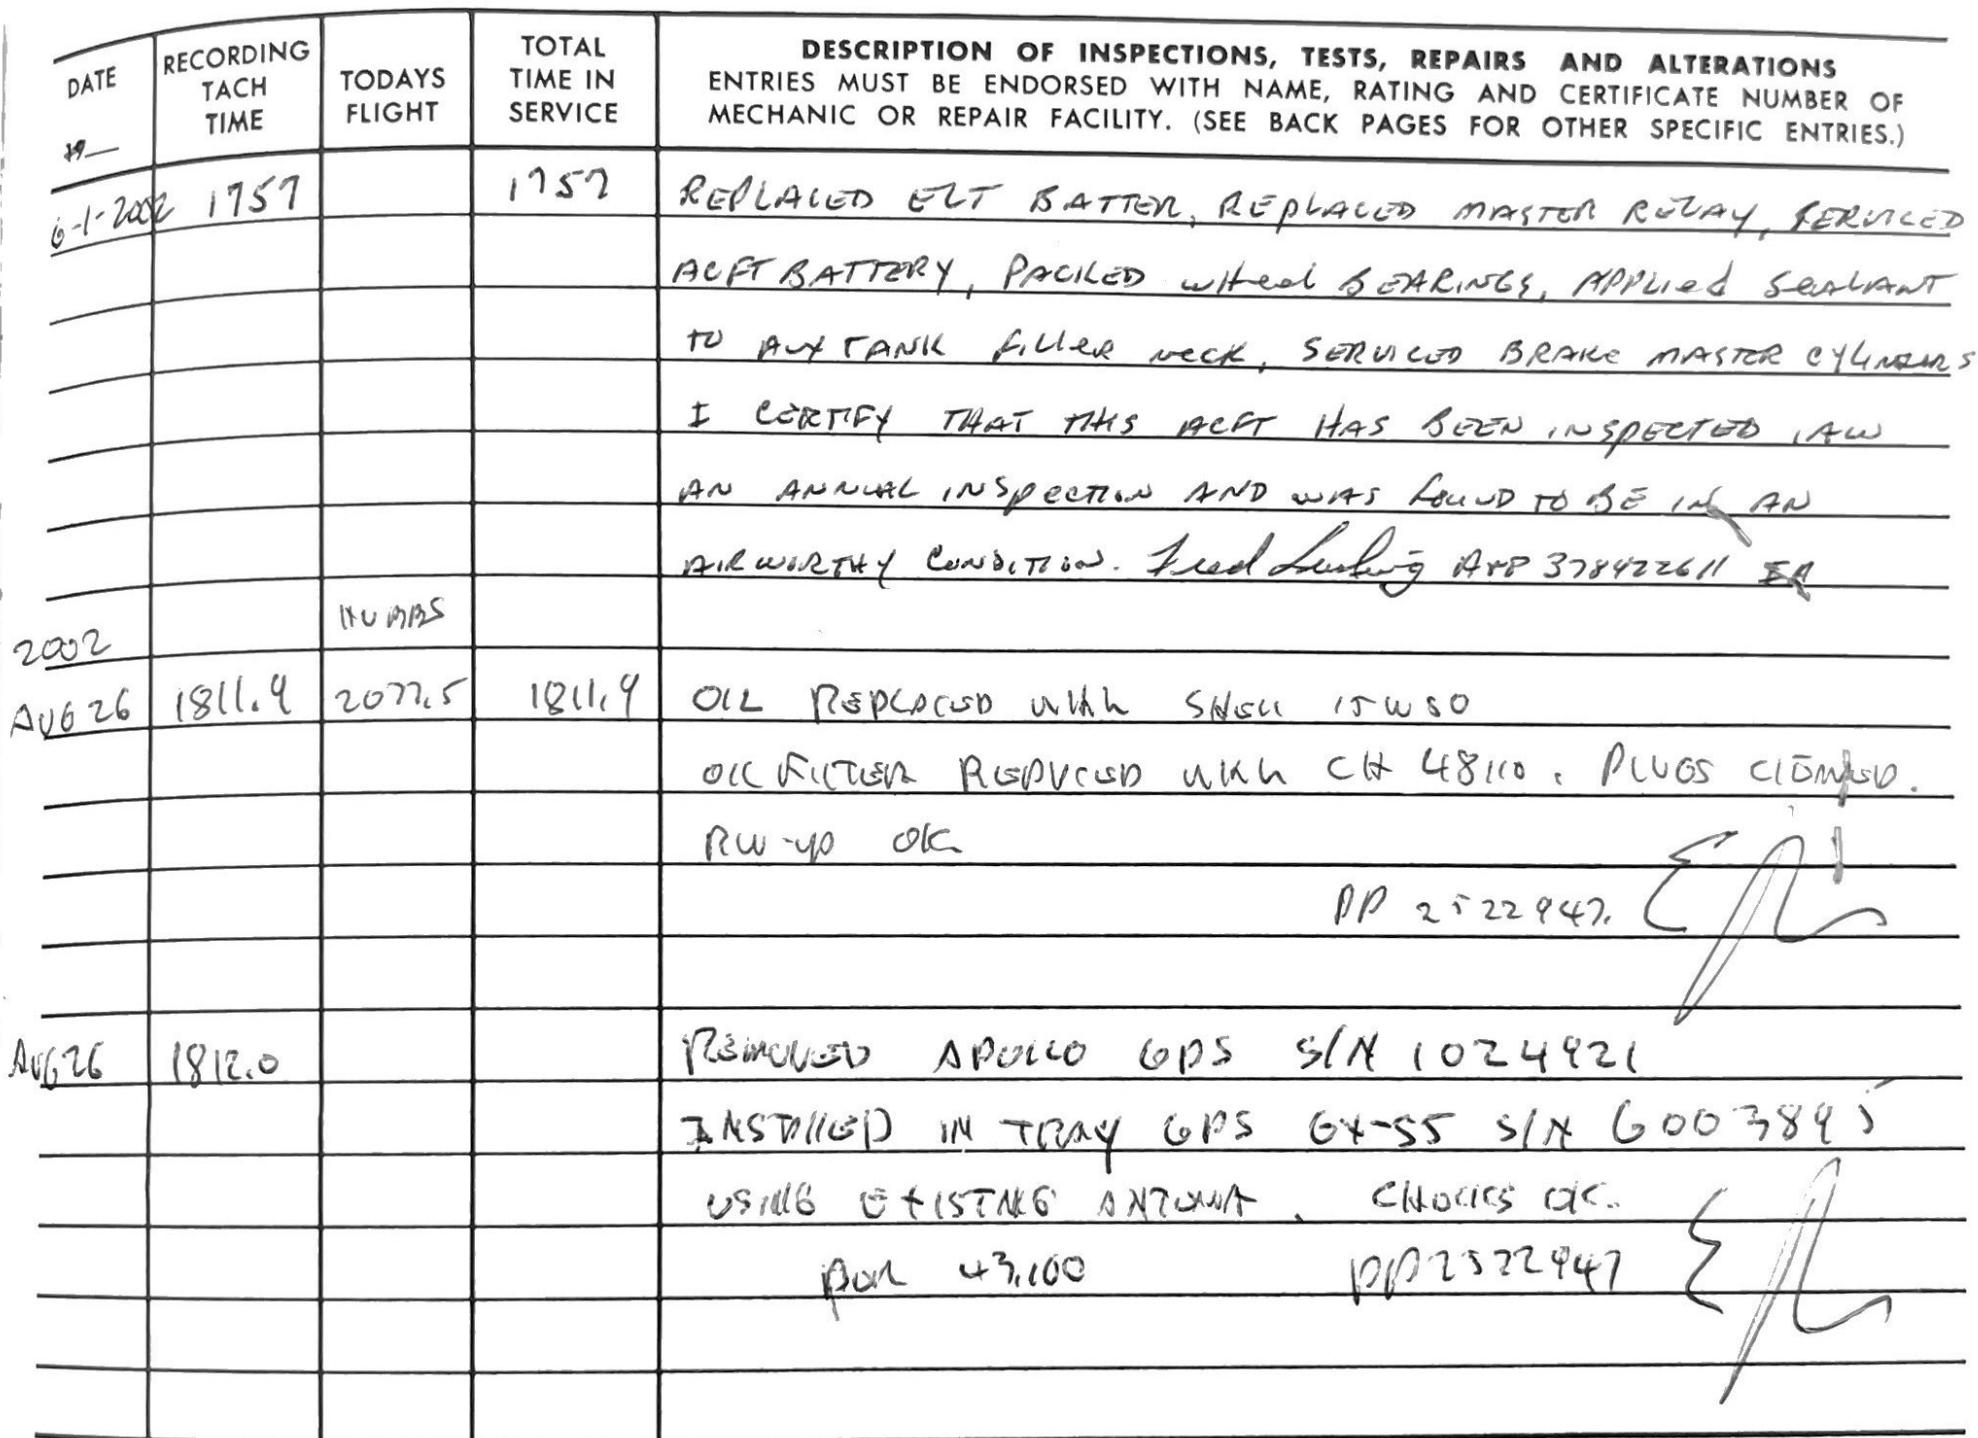 DATE
19—
RECORDING
TACH
TIME
TODAYS
FLIGHT
TOTAL
TIME IN
SERVICE
DESCRIPTION OF INSPECTIONS, TESTS, REPAIRS AND ALTERATIONS
ENTRIES MUST BE ENDORSED WITH NAME, RATING AND CERTIFICATE NUMBER OF
MECHANIC OR REPAIR FACILITY. (SEE BACK PAGES FOR OTHER SPECIFIC ENTRIES.)
6-1-2002 1757 1757 REPLACED ELT BATTER, REPLACED MASTER RELAY, SERVICED
ACFT BATTERY, PACKED WHEEL BEARINGS, APPLIED SEALANT
TO AUX TANK FILLER NECK, SERVICED BRAKE MASTER CYLINDERS
I CERTIFY THAT THIS ACFT HAS BEEN INSPECTED IAW
AN ANNUAL INSPECTION AND WAS FOUND TO BE IN AN
AIRWORTHY CONDITION. Fred A&P 378422611 IA
HOBBS
2002
AUG 26 1811.9 2077.5 1811.9 OIL REPLACED WITH SHELL 15W50
OIL FILTER REPLACED WITH CH 48110. PLUGS CLEANED.
RUN-UP OK
PP 2522947.
AUG 26 1812.0 REMOVED APOLLO GPS S/N 1024921
INSTALLED IN TRAY GPS GX-55 S/N G003895
USING EXISTING ANTENNA. CHECKS OK.
PER 43.100 PP 2522947